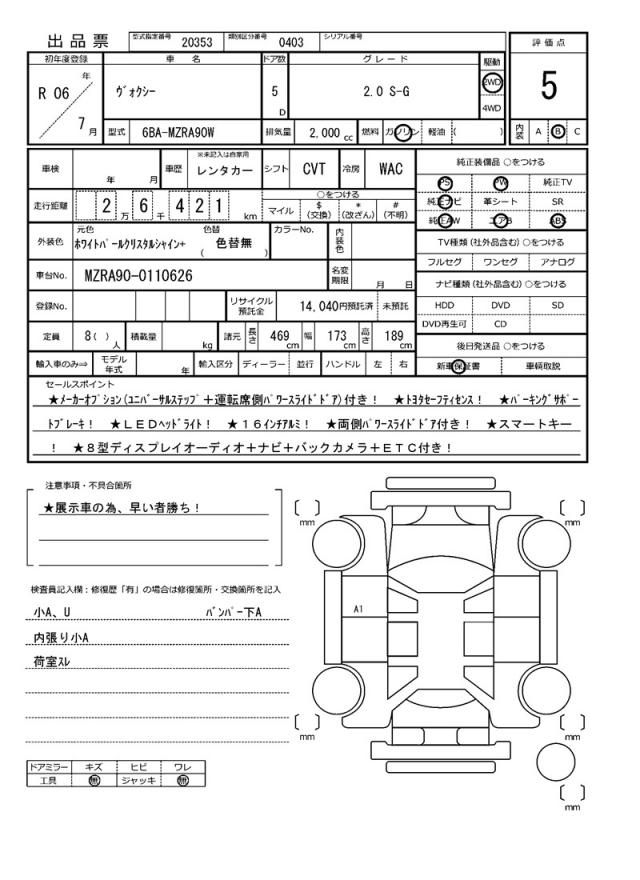 出品票 型式指定番号 20353 類別区分番号 0403 シリアル番号
初年度登録 車 名 ドア数 グレード 駆動 評価点
R 06 年 7 月 ヴォクシー 5 D 2.0 S-G 2WD 4WD 5
型式 6BA-MZRA90W 排気量 2,000 cc 燃料 ガソリン 軽油 ( ) 内装 A B C
車検 年 月 車歴 ※未記入は自家用 レンタカー シフト CVT 冷房 WAC
走行距離 2 万 6 千 4 2 1 km ○をつける
マイル $ (交換) * (改ざん) # (不明)
外装色 元色 ホワイトパールクリスタルシャイン+ 色替 ( 色替無 ) カラーNo. 内装色
車台No. MZRA90-0110626 名変期限 月 日
登録No. リサイクル預託金 14,040円預託済 未預託
定員 8( ) 人 積載量 kg 諸元 長さ 469 cm 幅 173 cm 高さ 189 cm
輸入車のみ⇒ モデル年式 年 輸入区分 ディーラー 並行 ハンドル 左 右
純正装備品 ○をつける
PS PW 純正TV
純正ナビ 革シート SR
純正AW エアB ABS
TV種類 (社外品含む) ○をつける
フルセグ ワンセグ アナログ
ナビ種類 (社外品含む) ○をつける
HDD DVD SD
DVD再生可 CD
後日発送品 ○をつける
新車保証書 車輌取説
セールスポイント
★メーカーオプション(ユニバーサルステップ+運転席側パワースライドドア)付き! ★トヨタセーフティセンス! ★パーキングサポー
トブレーキ! ★LEDヘッドライト! ★16インチアルミ! ★両側パワースライドドア付き! ★スマートキー
! ★8型ディスプレイオーディオ+ナビ+バックカメラ+ETC付き!
注意事項・不具合箇所
★展示車の為、早い者勝ち!
検査員記入欄:修復歴「有」の場合は修復箇所・交換箇所を記入
小A、U バンパー下A
内張り小A
荷室スレ
ドアミラー キズ ヒビ ワレ
工具 無 ジャッキ 無
[ ] mm [ ] mm
A1
[ ] mm [ ] mm
[ ] mm